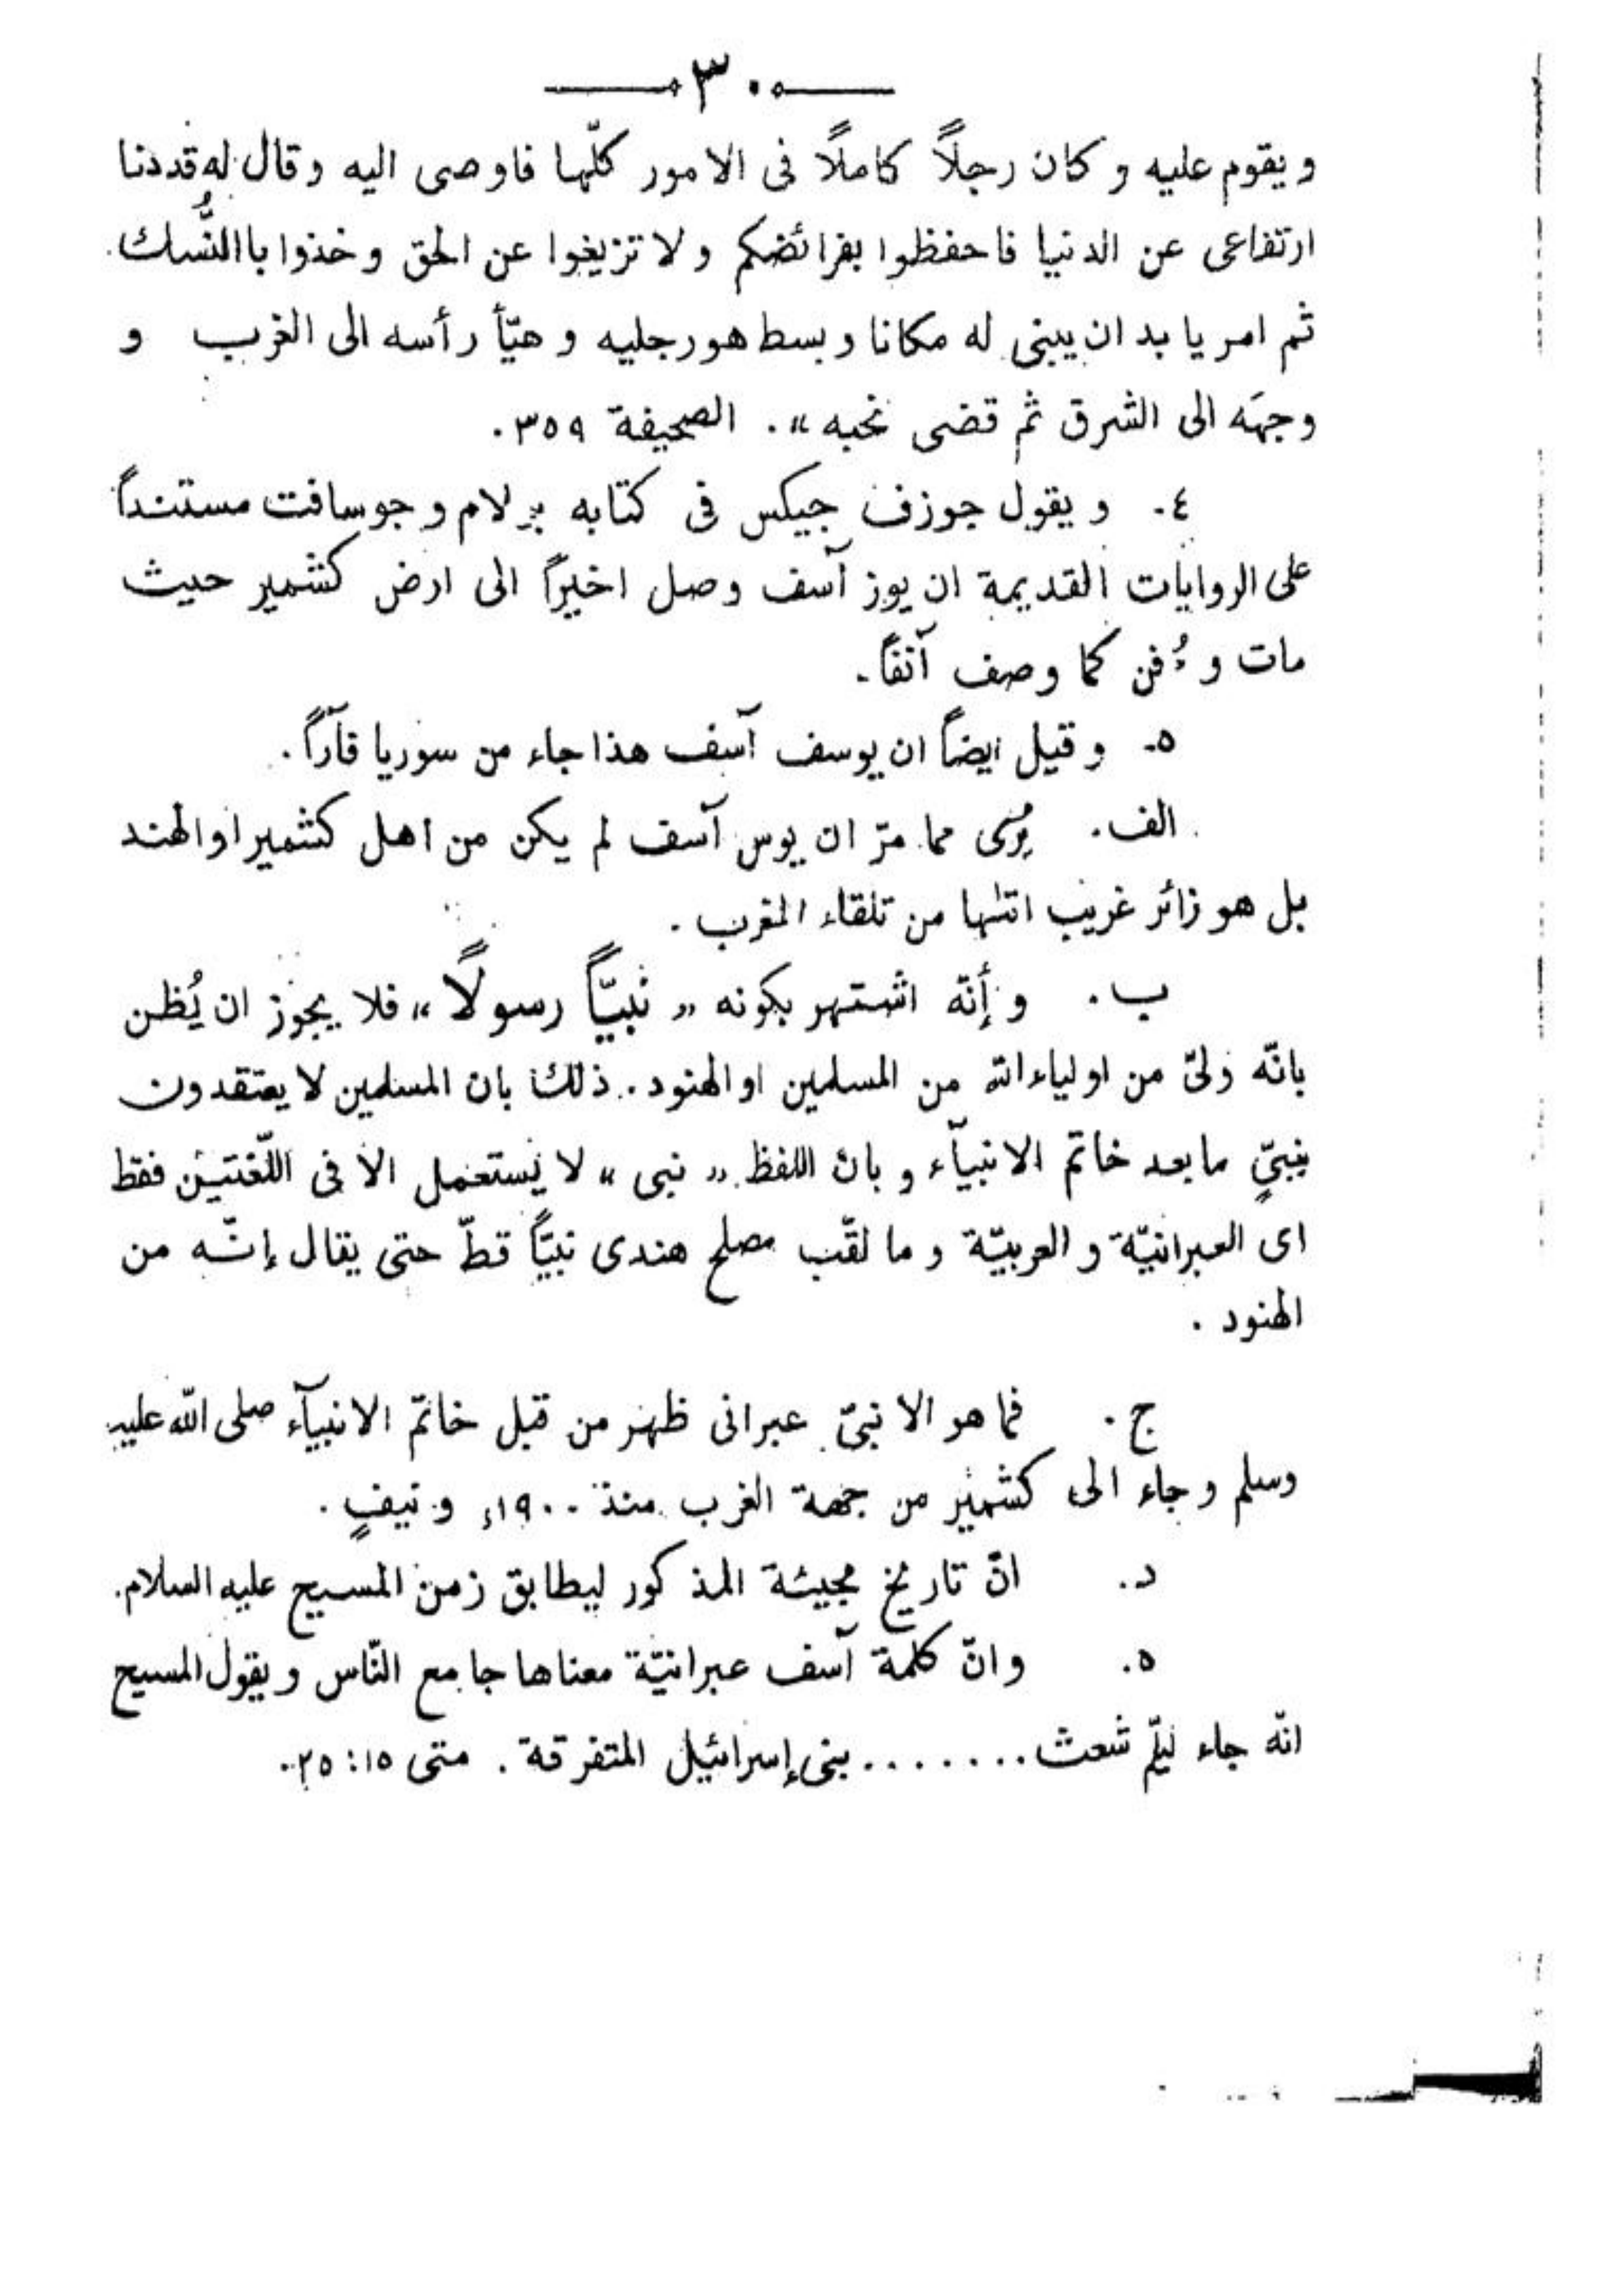 ٣٠
ويقوم عليه و كان رجلاً كاملاً فى الامور كلّها فاوصى اليه وقال له قددنا
ارتفاعى عن الدنيا فاحفظوا بفرائضكم ولا تزيغوا عن الحق وخذوا باالنُّسك
ثم امر يابد ان يبنى له مكانا وبسط هورجليه و هيّأ رأسه الى الغرب و
وجهَه الى الشرق ثم قضى نحبه». الصحيفة ٣٥٩.
٤. ويقول جوزف جيكس فى كتابه برلام وجوسافت مستنداً
على الروايات القديمة ان يوز آسف وصل اخيراً الى ارض كشمير حيث
مات و دُفن كما وصف آنفًا.
٥- وقيل ايضاً ان يوسف آسف هذا جاء من سوريا فآرّاً.
الف. يُرىٰ مما مرّ ان يوس آسف لم يكن من اهل كشمير او الهند
بل هو زائر غريب اتٰها من تلقاء المغرب.
ب. و أنّه اشتهر بكونه «نبيّاً رسولاً» فلا يجوز ان يُظن
بانّه ولىّ من اولياء الله من المسلمين او الهنود. ذلك بان المسلمين لا يعتقدون
بنبىّ مابعد خاتم الانبيآء و بان اللفظ «نبى» لا يستعمل الا فى اللّغتين فقط
اى العبرانيّة و العربيّة و ما لقّب مصلح هندى نبيًّا قطّ حتى يقال إنّه من
الهنود.
ج. فما هو الا نبىّ عبرانى ظهر من قبل خاتم الانبيآء صلى الله عليه
وسلم وجاء الى كشمير من جهة الغرب منذ ١٩٠٠ء ونيفٍ.
د. انّ تاريخ مجيئة المذكور ليطابق زمن المسيح عليه السلام.
ه. وانّ كلمة آسف عبرانيّة معناها جامع النّاس ويقول المسيح
انّه جاء ليلّم شعث....... بنى إسرائيل المتفرقة. متى ٢٥:١٥.